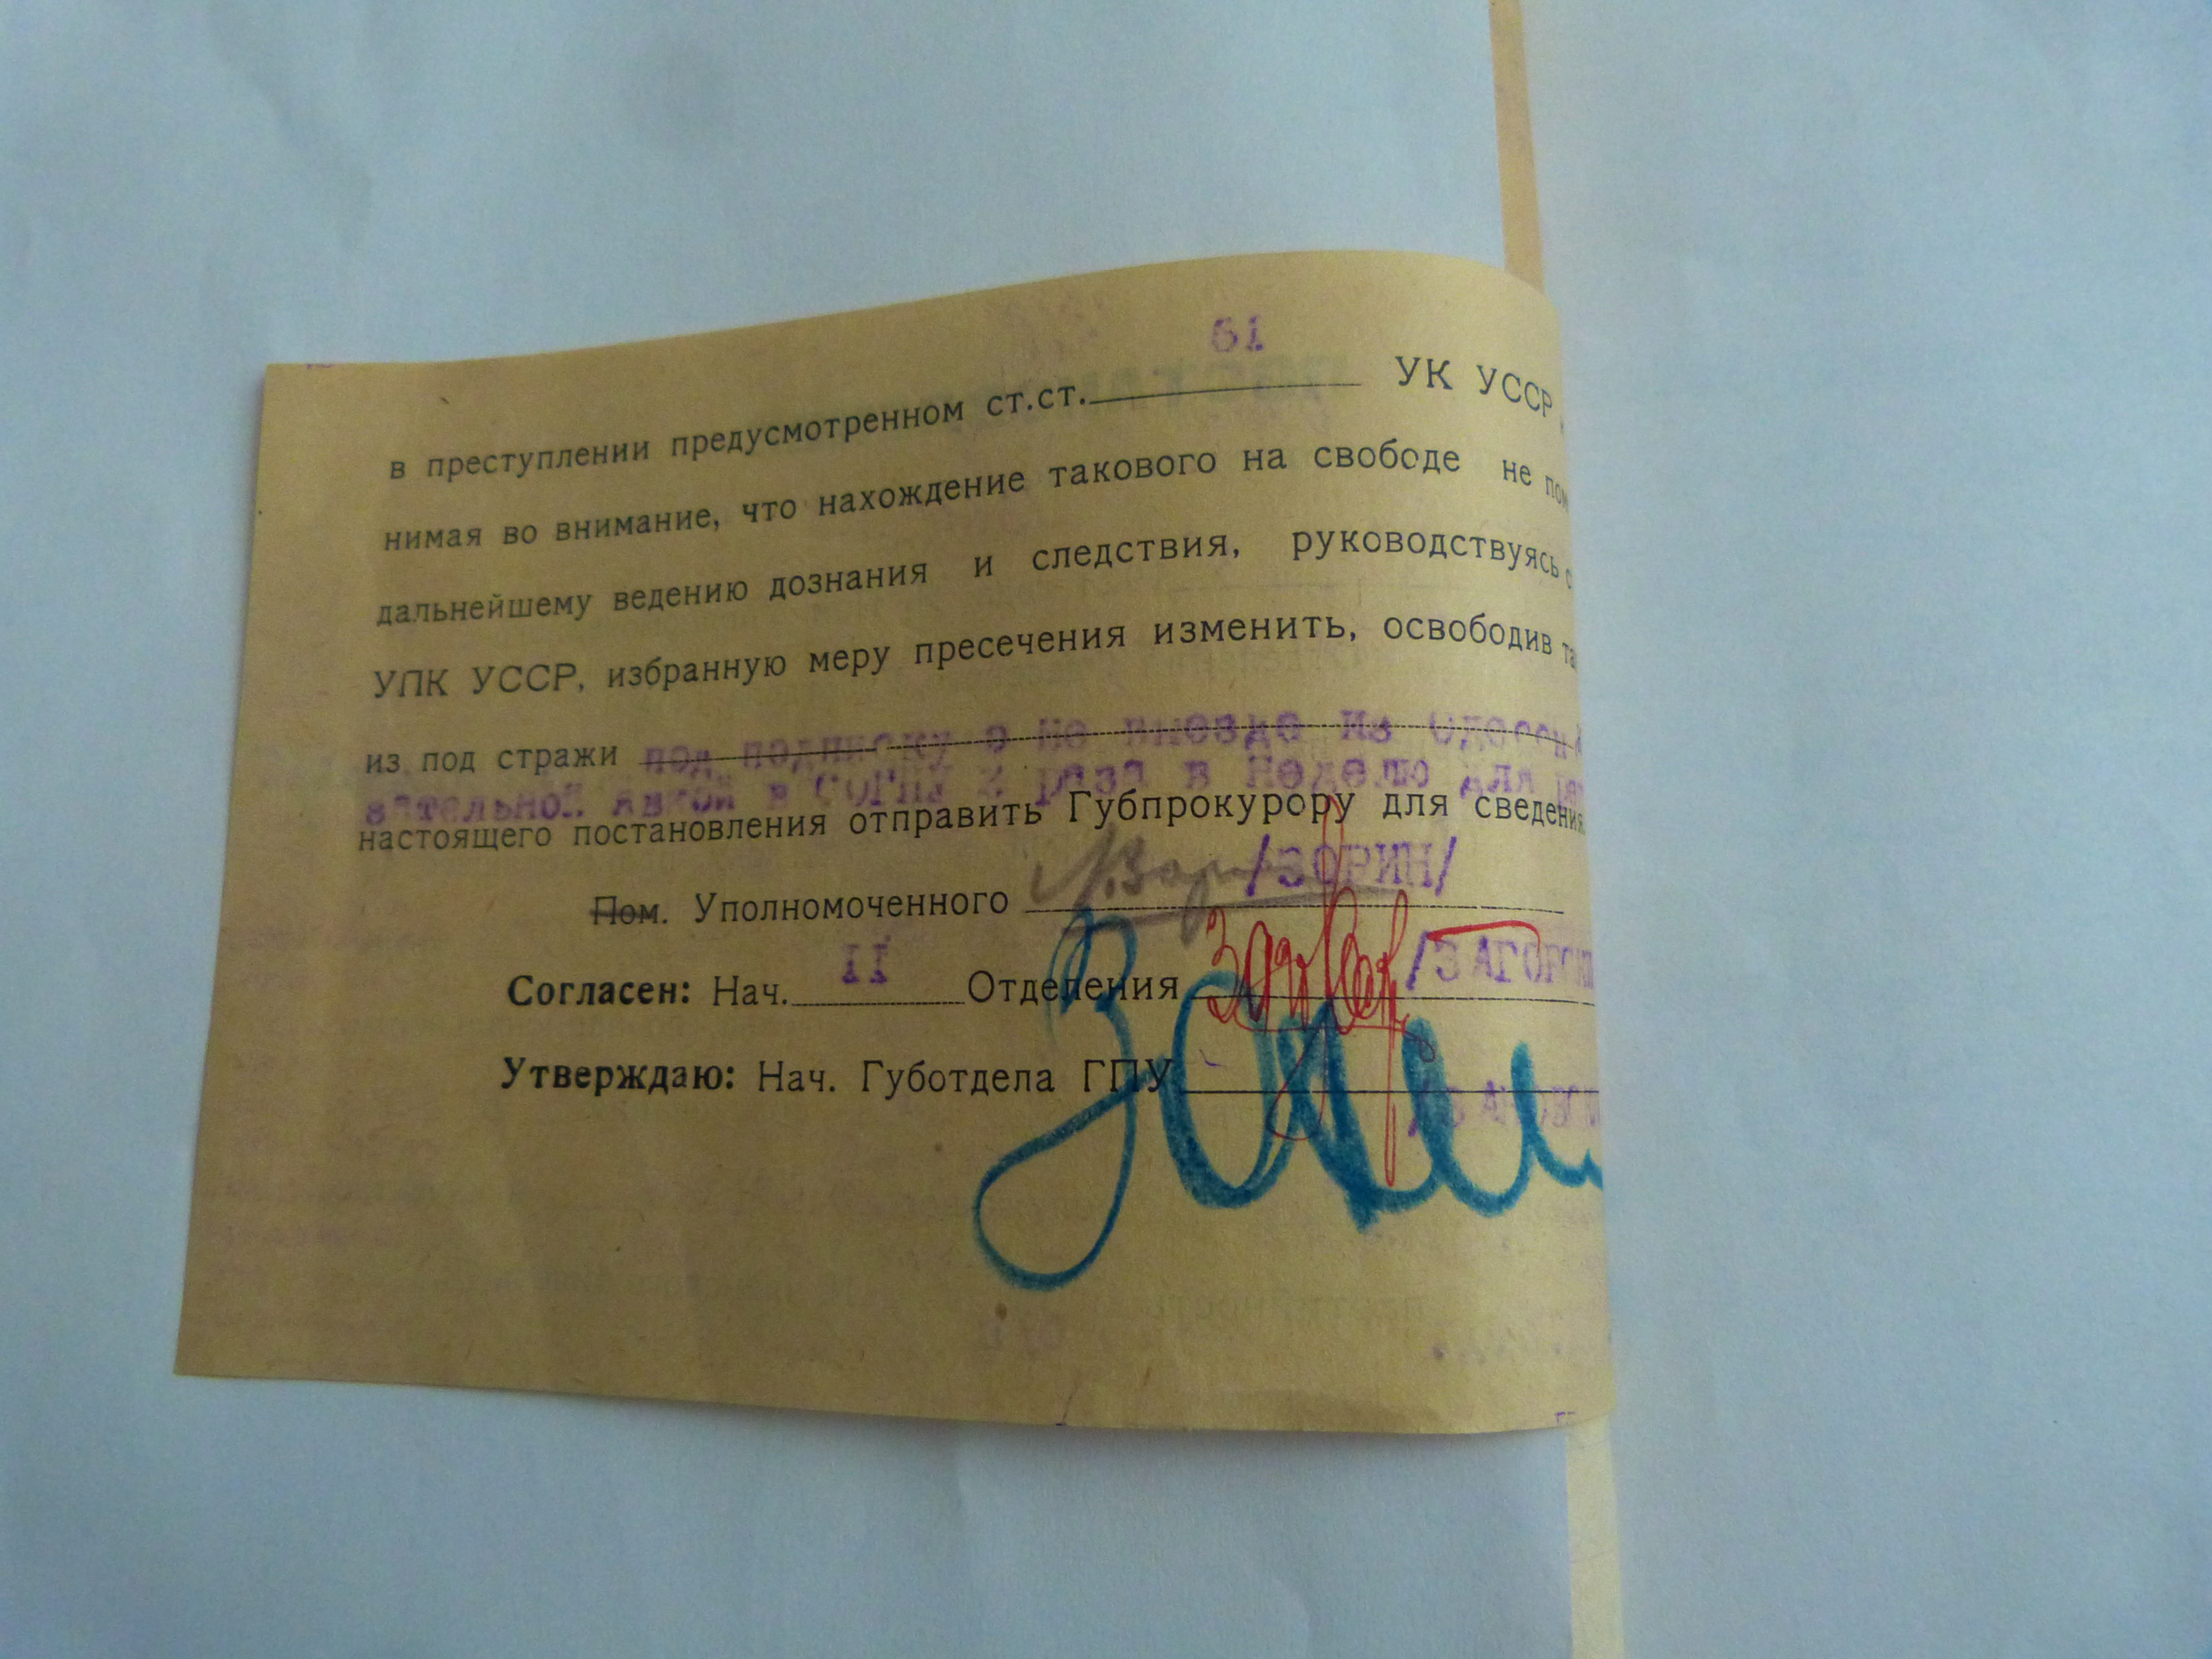 61
в преступлении предусмотренном ст.ст. УК УССР
нимая во внимание, что нахождение такового на свободе не пом
дальнейшему ведению дознания и следствия, руководствуясь с
УПК УССР, избранную меру пресечения изменить, освободив та
из под стражи под подписку о не выезде из Одессы
зательной явкой в СОГПУ 2 раза в неделю для
настоящего постановления отправить Губпрокурору для сведения
/ЗОРИН/
Пом. Уполномоченного
II /ЗАГОРСКИ
Согласен: Нач. Отделения
Утверждаю: Нач. Губотдела ГПУ